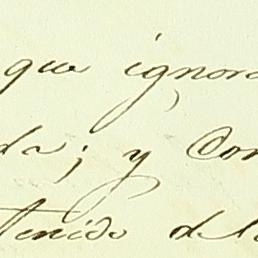 que ignora
da; y con
tenido del